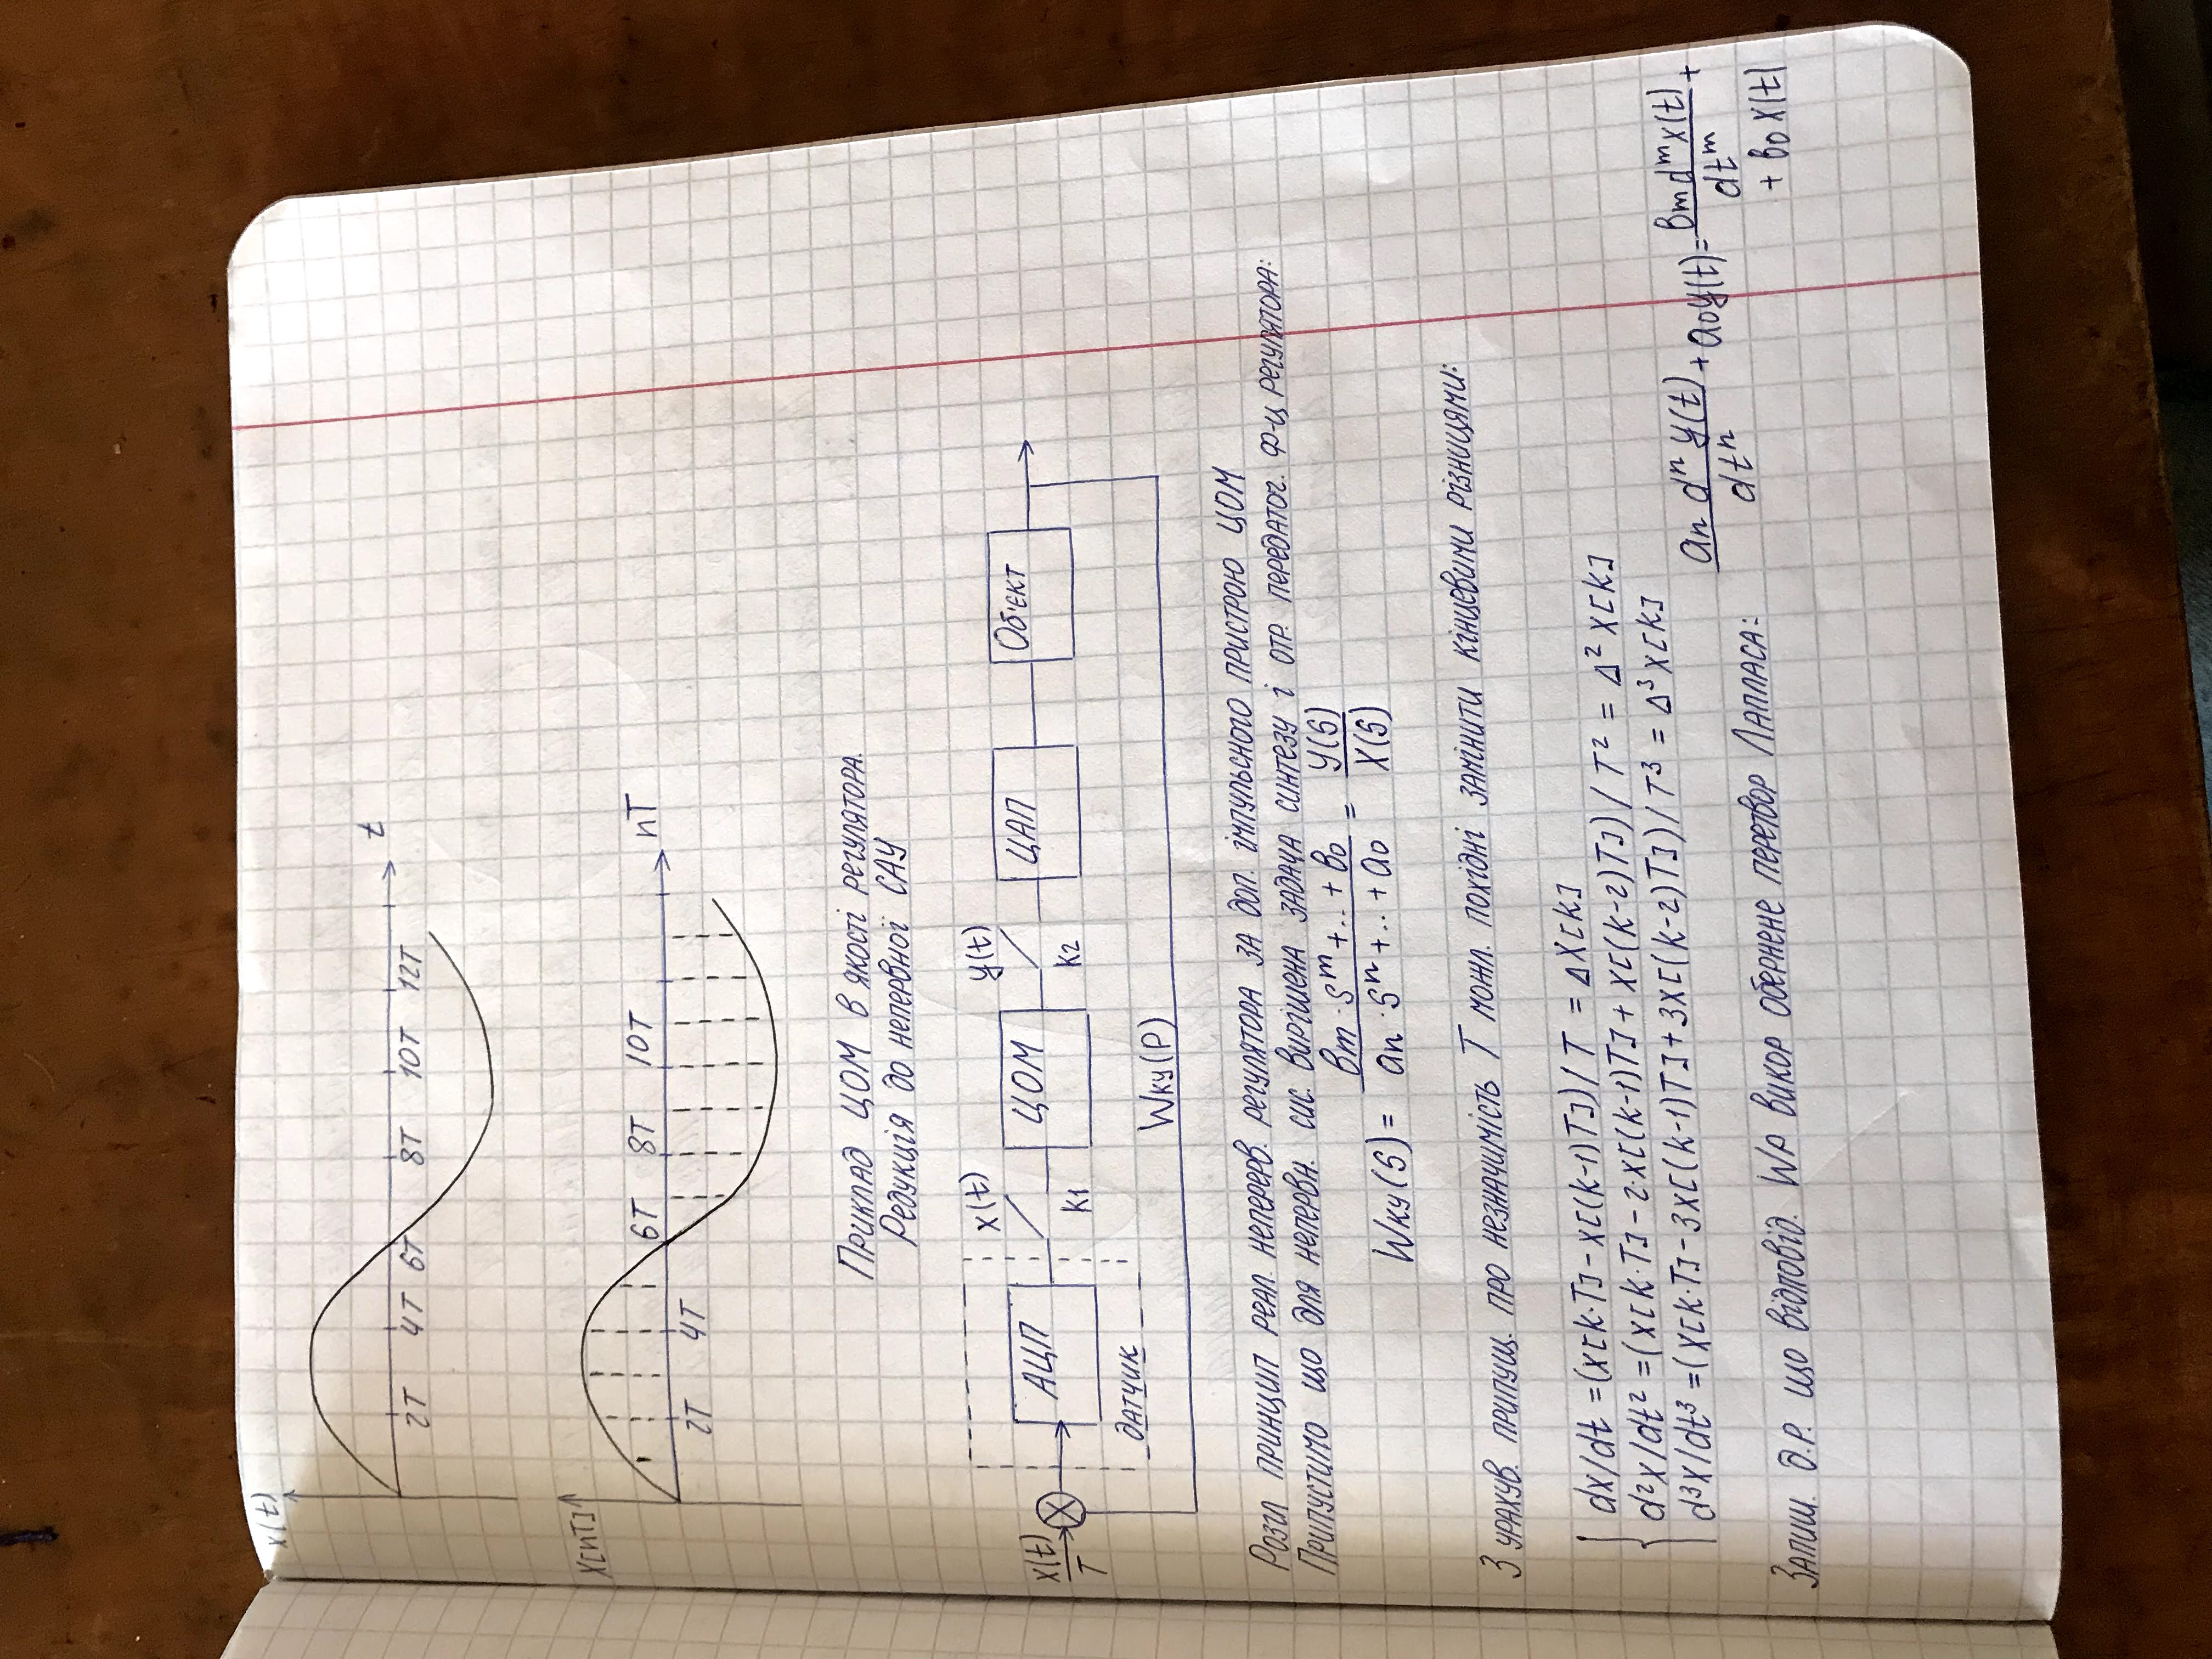 x(t)
t
2T 4T 6T 8T 10T 12T
x[nT]
6T 8T 10T nT
2T 4T
Приклад ЦОМ в якості регулятора.
Редукція до непервної САУ
x(t) y(t)
x(t)/T АЦП ЦОМ ЦАП Об'єкт
k1 k2
датчик
Wку(P)
Розгл принцип реал. неперерв. регулятора за доп. імпульсного пристрою ЦОМ
Припустимо що для непервн. сис. вирішена задача синтезу і отр. передаточ. ф-ц регулятора:
Wку(S) = (вm·S^m+..+в0)/(an·S^n+..+a0) = Y(S)/X(S)
З урахув. припущ. про незначимість T можл. похідні замінити кінцевими різницями:
dx/dt =(x[k·T]-x[(k-1)T])/T = ΔX[k]
d²x/dt² =(x[k·T]-2·x[(k-1)T]+x[(k-2)T])/T² = Δ²X[k]
d³x/dt³ =(x[k·T]-3x[(k-1)T]+3x[(k-2)T])/T³ = Δ³x[k]
Запиш. д.р. що відповід. Wр викор обернене перетвор Лапласа: an d^n y(t)/dt^n + a0y(t)= вm d^m x(t)/dt^m +
+ в0 x(t)